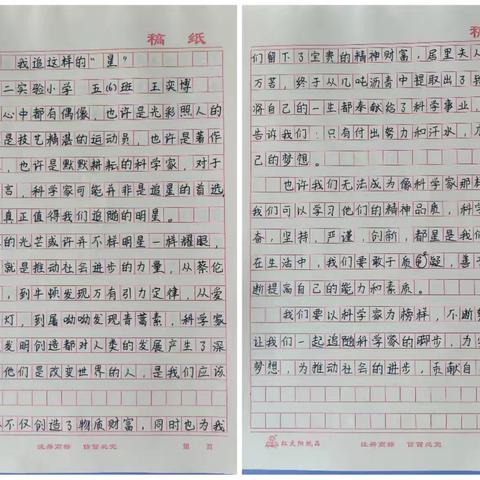 稿 纸
我追这样的“星”
二实验小学 五(6)班 王奕博
心中都有偶像,也许是光彩照人的
是技艺精湛的运动员,也许是著作
,也许是默默耕耘的科学家,对于
言,科学家可能并非是追星的首选,
真正值得我们追随的明星。
的光芒或许并不样明星一样耀眼,
就是推动社会进步的力量,从蔡伦
,到牛顿发现万有引力定律,从爱
灯,到屠呦呦发现青蒿素,科学家
发明创造都对人类的发展产生了深
他们是改变世界的人,是我们应该
不仅创造了物质财富,同时也为我
注册商标 仿冒必究 第 页
稿
们留下了宝贵的精神财富,居里夫人
万苦,终于从几吨沥青中提取出了
将自己的一生都奉献给了科学事业,
告许我们:只有付出努力和汗水,
己的梦想。
也许我们无法成为像科学家那样
我们可以学习他们的精神品质,科学
奋,坚持,严谨,创新,都里是我们
在生活中,我们要敢于质疑,善于
断提高自己的能力和素质。
我们要以科学家为榜样,不断努
让我们一起追随科学家的脚步,为
梦想,为推动社会的进步,贡献自
红太阳纸品 注册商标 仿冒必究